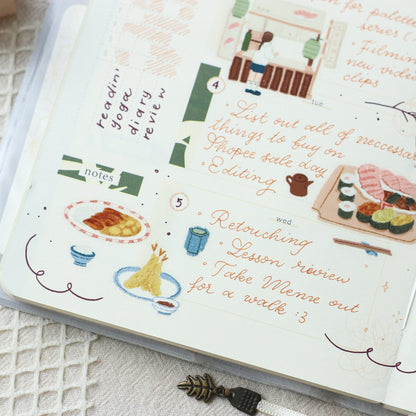 n for palette
series (
Filming
new video
clips
readin'
yoga
diary
review
4
tue
List out all of neccessa
things to buy on
Shopee sale day
Editing
notes
5
wed
Retouching
Lesson review
Take Meme out
for a walk :3